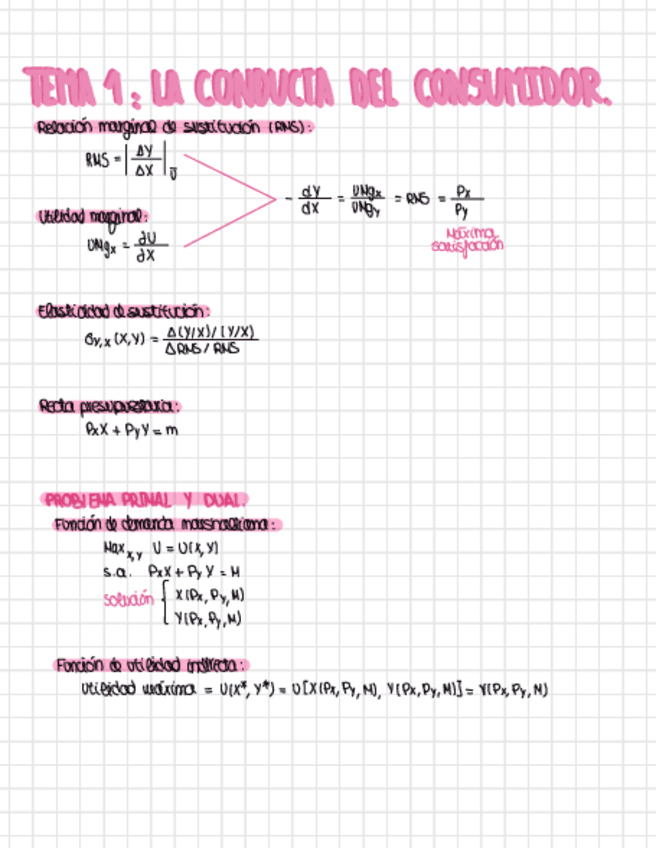 TEMA 1: LA CONDUCTA DEL CONSUMIDOR.
Relación marginal de sustitución (RMS):
RMS = |ΔY/ΔX|Ū
- dY/dX = UMgx/UMgy = RMS = Px/Py
Máxima
satisfacción
Utilidad marginal:
UMgx = ∂U/∂X
Elasticidad de sustitución:
σy,x (X,Y) = Δ(Y/X)/(Y/X) / ΔRMS/RMS
Recta presupuestaria:
PxX + PyY = m
PROBLEMA PRIMAL Y DUAL.
Función de demanda marshalliana:
Max x,y U = U(X,Y)
s.a. PxX + PyY = M
solución { X(Px, Py, M)
Y(Px, Py, M)
Función de utilidad indirecta:
Utilidad máxima = U(X*, Y*) = U[X(Px,Py,M), Y(Px,Py,M)] = V(Px,Py,M)